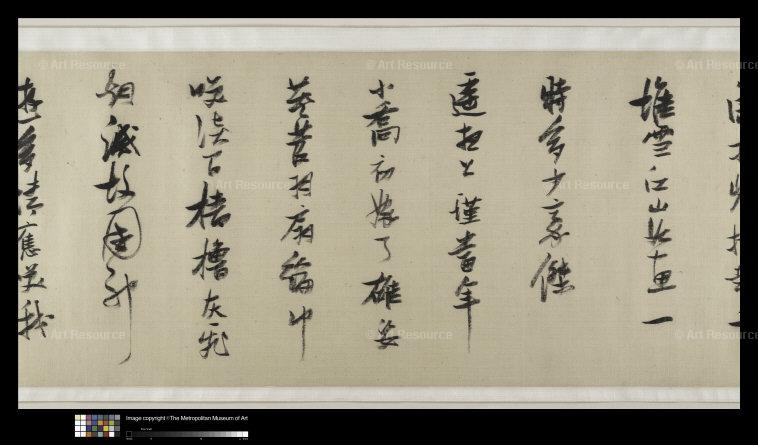 堆雪江山如畫一
時多少豪傑
遙想公瑾當年
小喬初嫁了雄姿
英發羽扇綸巾
咲談間檣櫓灰飛
烟滅故國神
遊多情應笑我
© Art Resource
© Art Resource
© Art Resource
© Art Resource
© Art Resource
© Art Resource
© Art Resource
© Art Resource
Image copyright ©The Metropolitan Museum of Art